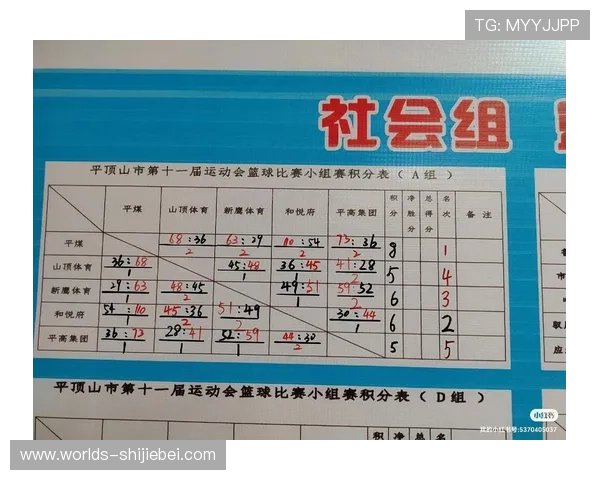 TG: MYYJJPP
社会组
平顶山市第十一届运动会篮球比赛小组赛积分表（A组）
平煤 山顶体育 新鹰体育 和悦府 平高集团 积分 净胜分 总得分 名次 备注
平煤 68:36 2 63:29 2 110:54 2 73:36 2 8 1
山顶体育 36:68 1 45:48 1 36:45 1 41:28 2 5 4
新鹰体育 29:63 1 48:45 2 49:51 1 59:52 2 6 3
和悦府 54:110 1 45:36 2 51:49 2 30:44 1 6 2
平高集团 36:73 1 28:41 1 52:59 1 44:30 2 5 5
平顶山市第十一届运动会篮球比赛小组赛积分表（D组）
积 净 总 名
小红书
我的小红书号:5370405037
www.worlds-shijiebei.com